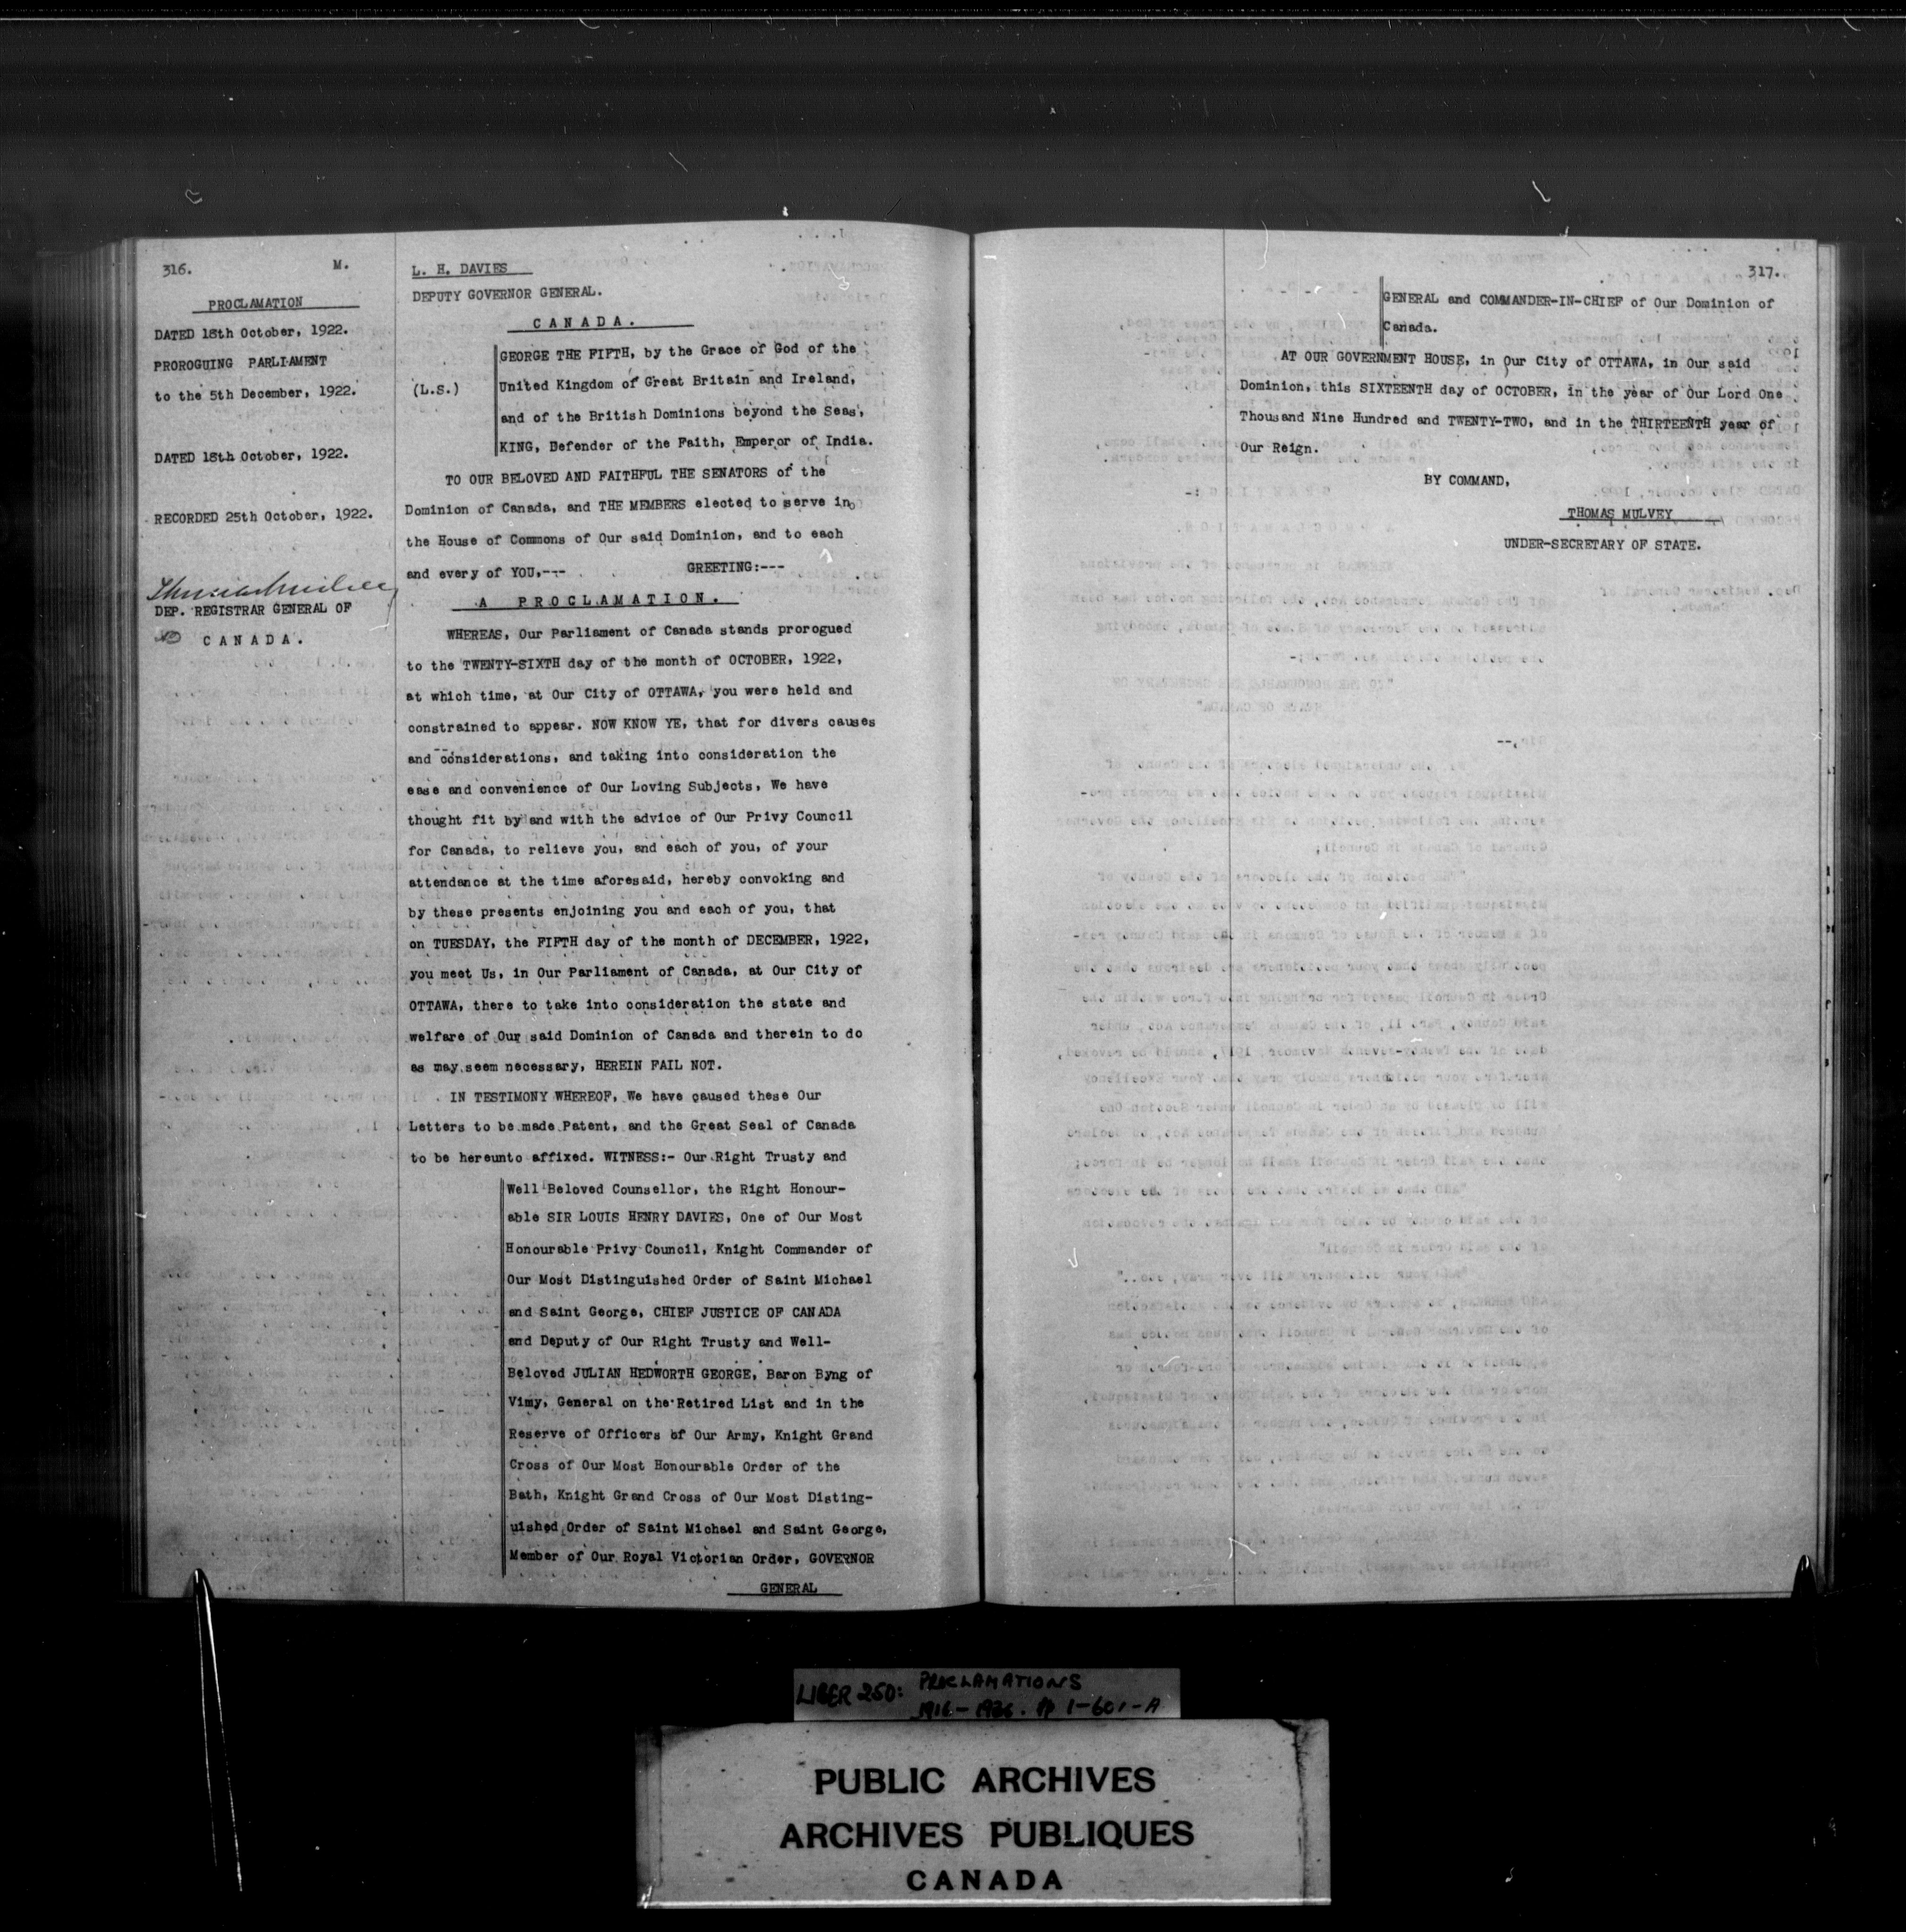 316.
M.
PROCLAMATION
DATED 18th October, 1922.
PROROGUING PARLIAMENT
to the 5th December, 1922.
DATED 18th October, 1922.
RECORDED 25th October, 1922.
DEP. REGISTRAR GENERAL OF
CANADA.
L. H. DAVIES
DEPUTY GOVERNOR GENERAL.
CANADA.
(L.S.)
GEORGE THE FIFTH, by the Grace of God of the
United Kingdom of Great Britain and Ireland,
and of the British Dominions beyond the Seas,
KING, Defender of the Faith, Emperor of India.
TO OUR BELOVED AND FAITHFUL THE SENATORS of the
Dominion of Canada, and THE MEMBERS elected to serve in
the House of Commons of Our said Dominion, and to each
and every of YOU,--- GREETING:---
A PROCLAMATION.
WHEREAS, Our Parliament of Canada stands prorogued
to the TWENTY-SIXTH day of the month of OCTOBER, 1922,
at which time, at Our City of OTTAWA, you were held and
constrained to appear. NOW KNOW YE, that for divers causes
and considerations, and taking into consideration the
ease and convenience of Our Loving Subjects, We have
thought fit by and with the advice of Our Privy Council
for Canada, to relieve you, and each of you, of your
attendance at the time aforesaid, hereby convoking and
by these presents enjoining you and each of you, that
on TUESDAY, the FIFTH day of the month of DECEMBER, 1922,
you meet Us, in Our Parliament of Canada, at Our City of
OTTAWA, there to take into consideration the state and
welfare of Our said Dominion of Canada and therein to do
as may seem necessary, HEREIN FAIL NOT.
IN TESTIMONY WHEREOF, We have caused these Our
Letters to be made Patent, and the Great Seal of Canada
to be hereunto affixed. WITNESS:- Our Right Trusty and
Well Beloved Counsellor, the Right Honour-
able SIR LOUIS HENRY DAVIES, One of Our Most
Honourable Privy Council, Knight Commander of
Our Most Distinguished Order of Saint Michael
and Saint George, CHIEF JUSTICE OF CANADA
and Deputy of Our Right Trusty and Well-
Beloved JULIAN HEDWORTH GEORGE, Baron Byng of
Vimy, General on the Retired List and in the
Reserve of Officers of Our Army, Knight Grand
Cross of Our Most Honourable Order of the
Bath, Knight Grand Cross of Our Most Disting-
uished Order of Saint Michael and Saint George,
Member of Our Royal Victorian Order, GOVERNOR
GENERAL
317.
GENERAL and COMMANDER-IN-CHIEF of Our Dominion of
Canada.
AT OUR GOVERNMENT HOUSE, in Our City of OTTAWA, in Our said
Dominion, this SIXTEENTH day of OCTOBER, in the year of Our Lord One
Thousand Nine Hundred and TWENTY-TWO, and in the THIRTEENTH year of
Our Reign.
BY COMMAND,
THOMAS MULVEY
UNDER-SECRETARY OF STATE.
LIBER 250: PROCLAMATIONS
1916-1936. pp 1-601-A
PUBLIC ARCHIVES
ARCHIVES PUBLIQUES
CANADA